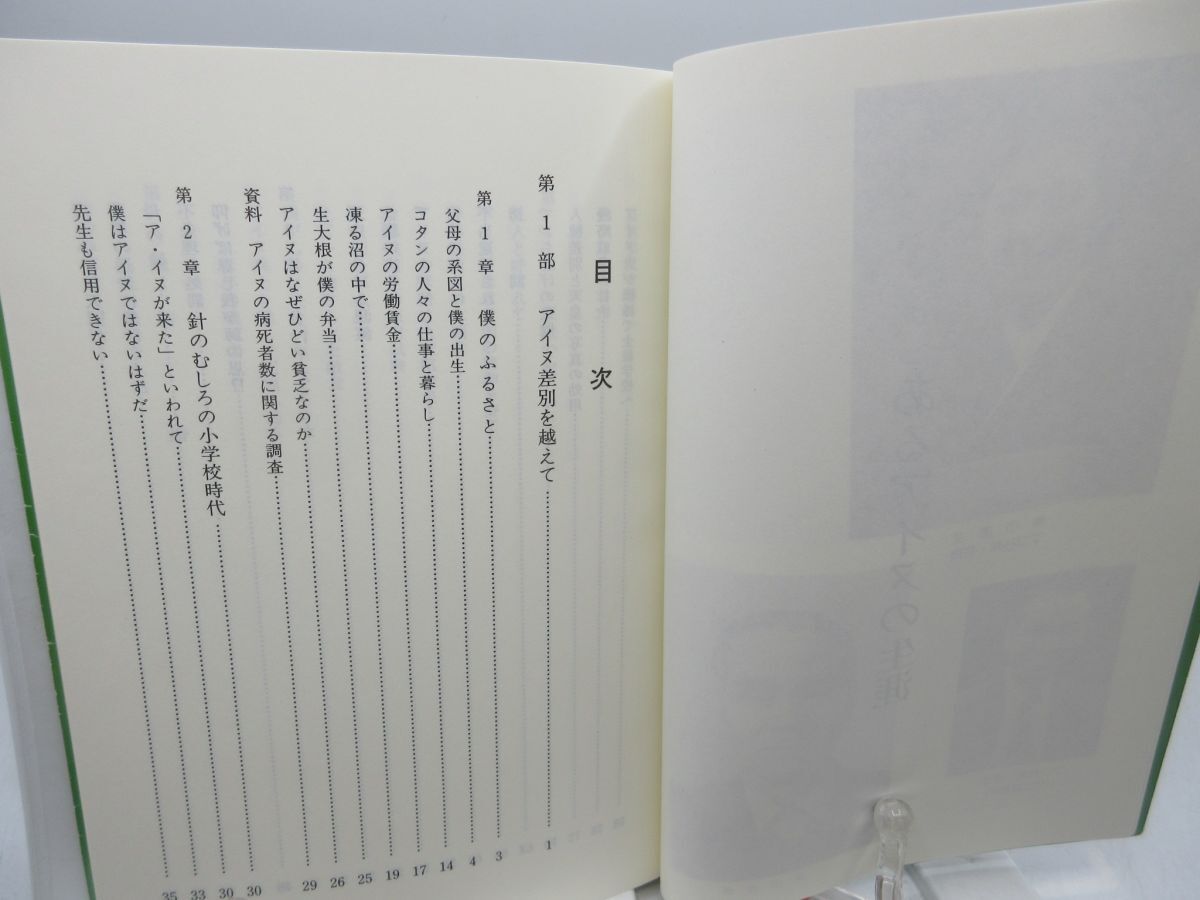 目次
第1部 アイヌ差別を越えて……1
第1章 僕のふるさと……3
父母の系図と僕の出生……4
コタンの人々の仕事と暮らし……14
アイヌの労働賃金……17
凍る沼の中で……19
生大根が僕の弁当……25
アイヌはなぜひどい貧乏なのか……26
資料 アイヌの病死者数に関する調査……29
第2章 針のむしろの小学校時代……30
「ア・イヌが来た」といわれて……30
僕はアイヌではないはずだ……33
先生も信用できない……35